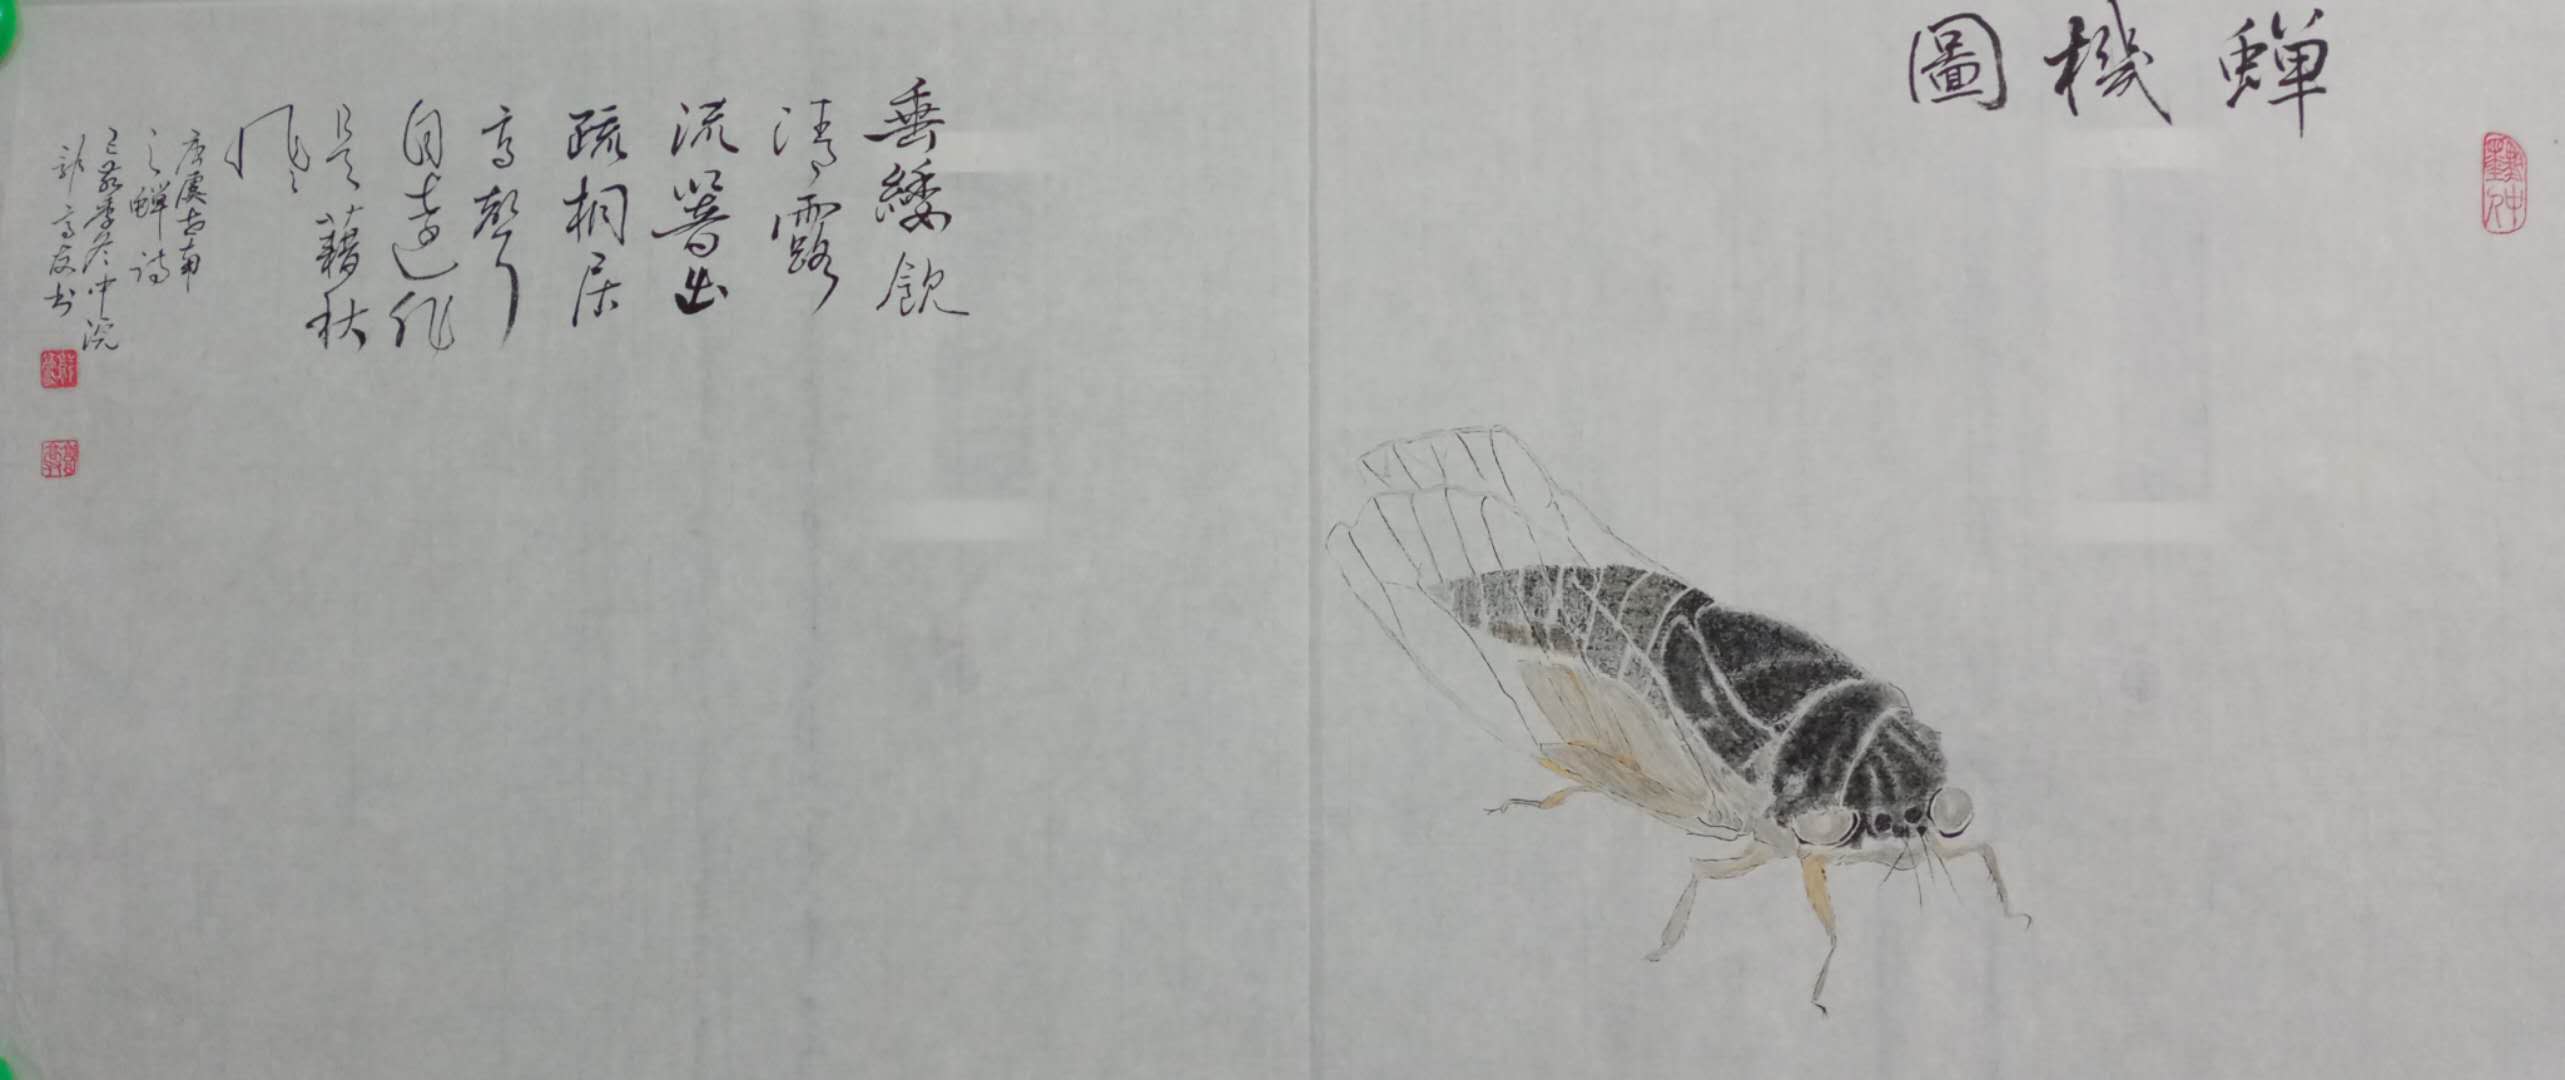 蝉機圖
垂緌飲
清露
流響出
疏桐居
高聲
自遠非
是藉秋
风
唐虞世南
之蝉诗
己亥季冬中浣
高友书